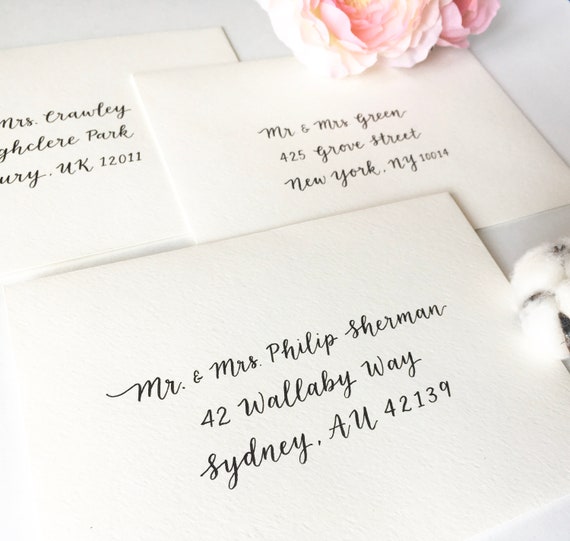 Mrs. Crawley
ghclere Park
ury, UK 12011
Mr & Mrs Green
425 Grove Street
New York, NY 10014
Mr. & Mrs. Philip Sherman
42 Wallaby Way
Sydney, AU 42139